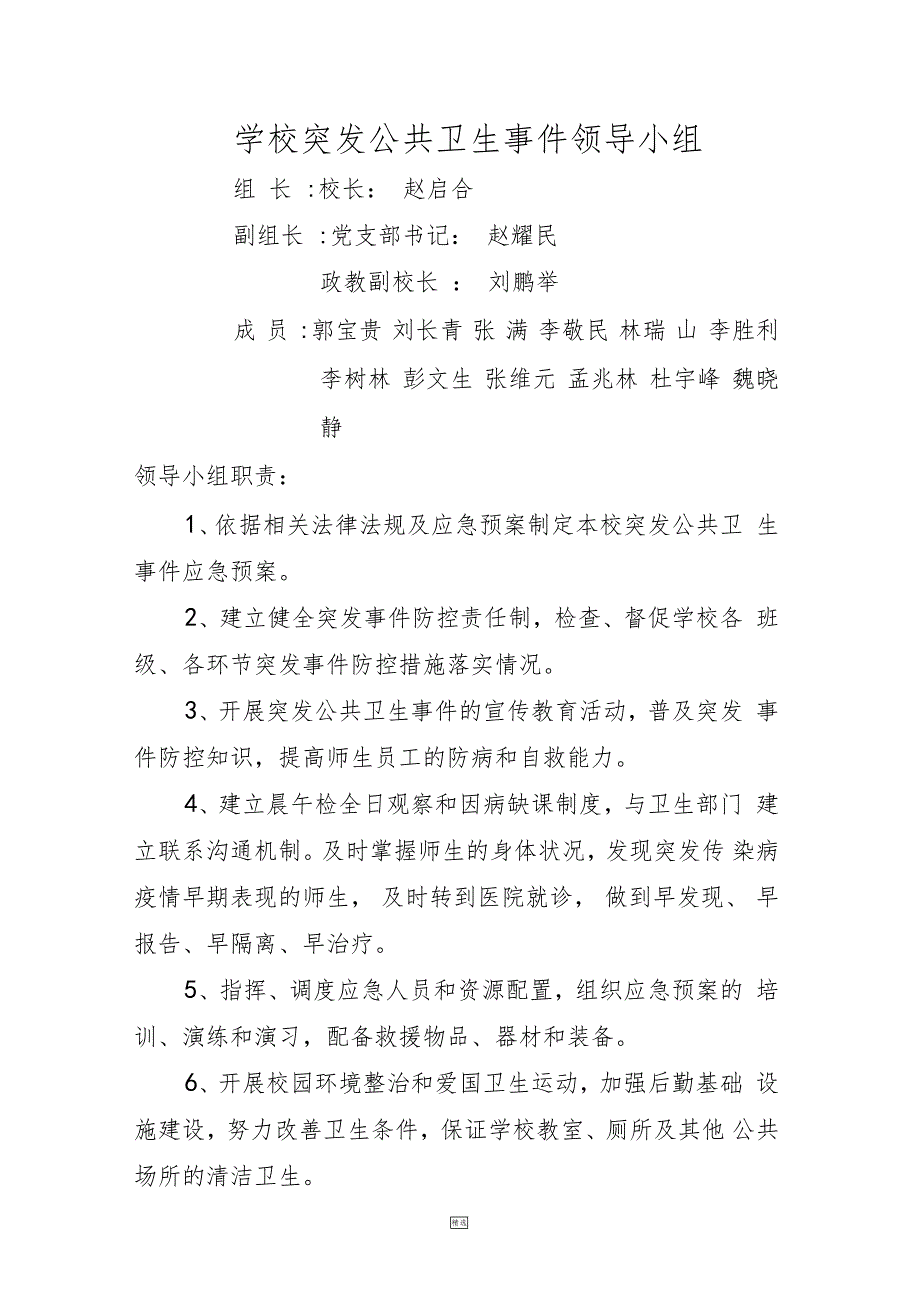 学校突发公共卫生事件领导小组
组 长 :校长： 赵启合
副组长 :党支部书记： 赵耀民
政教副校长 ： 刘鹏举
成 员 :郭宝贵 刘长青 张 满 李敬民 林瑞 山 李胜利
李树林 彭文生 张维元 孟兆林 杜宇峰 魏晓
静
领导小组职责：
1、依据相关法律法规及应急预案制定本校突发公共卫 生
事件应急预案。
2、建立健全突发事件防控责任制，检查、督促学校各 班
级、各环节突发事件防控措施落实情况。
3、开展突发公共卫生事件的宣传教育活动，普及突发 事
件防控知识，提高师生员工的防病和自救能力。
4、建立晨午检全日观察和因病缺课制度，与卫生部门 建
立联系沟通机制。及时掌握师生的身体状况，发现突发传 染病
疫情早期表现的师生， 及时转到医院就诊， 做到早发现、 早
报告、早隔离、早治疗。
5、指挥、调度应急人员和资源配置，组织应急预案的 培
训、演练和演习，配备救援物品、器材和装备。
6、开展校园环境整治和爱国卫生运动，加强后勤基础 设
施建设，努力改善卫生条件，保证学校教室、厕所及其他 公共
场所的清洁卫生。
精选